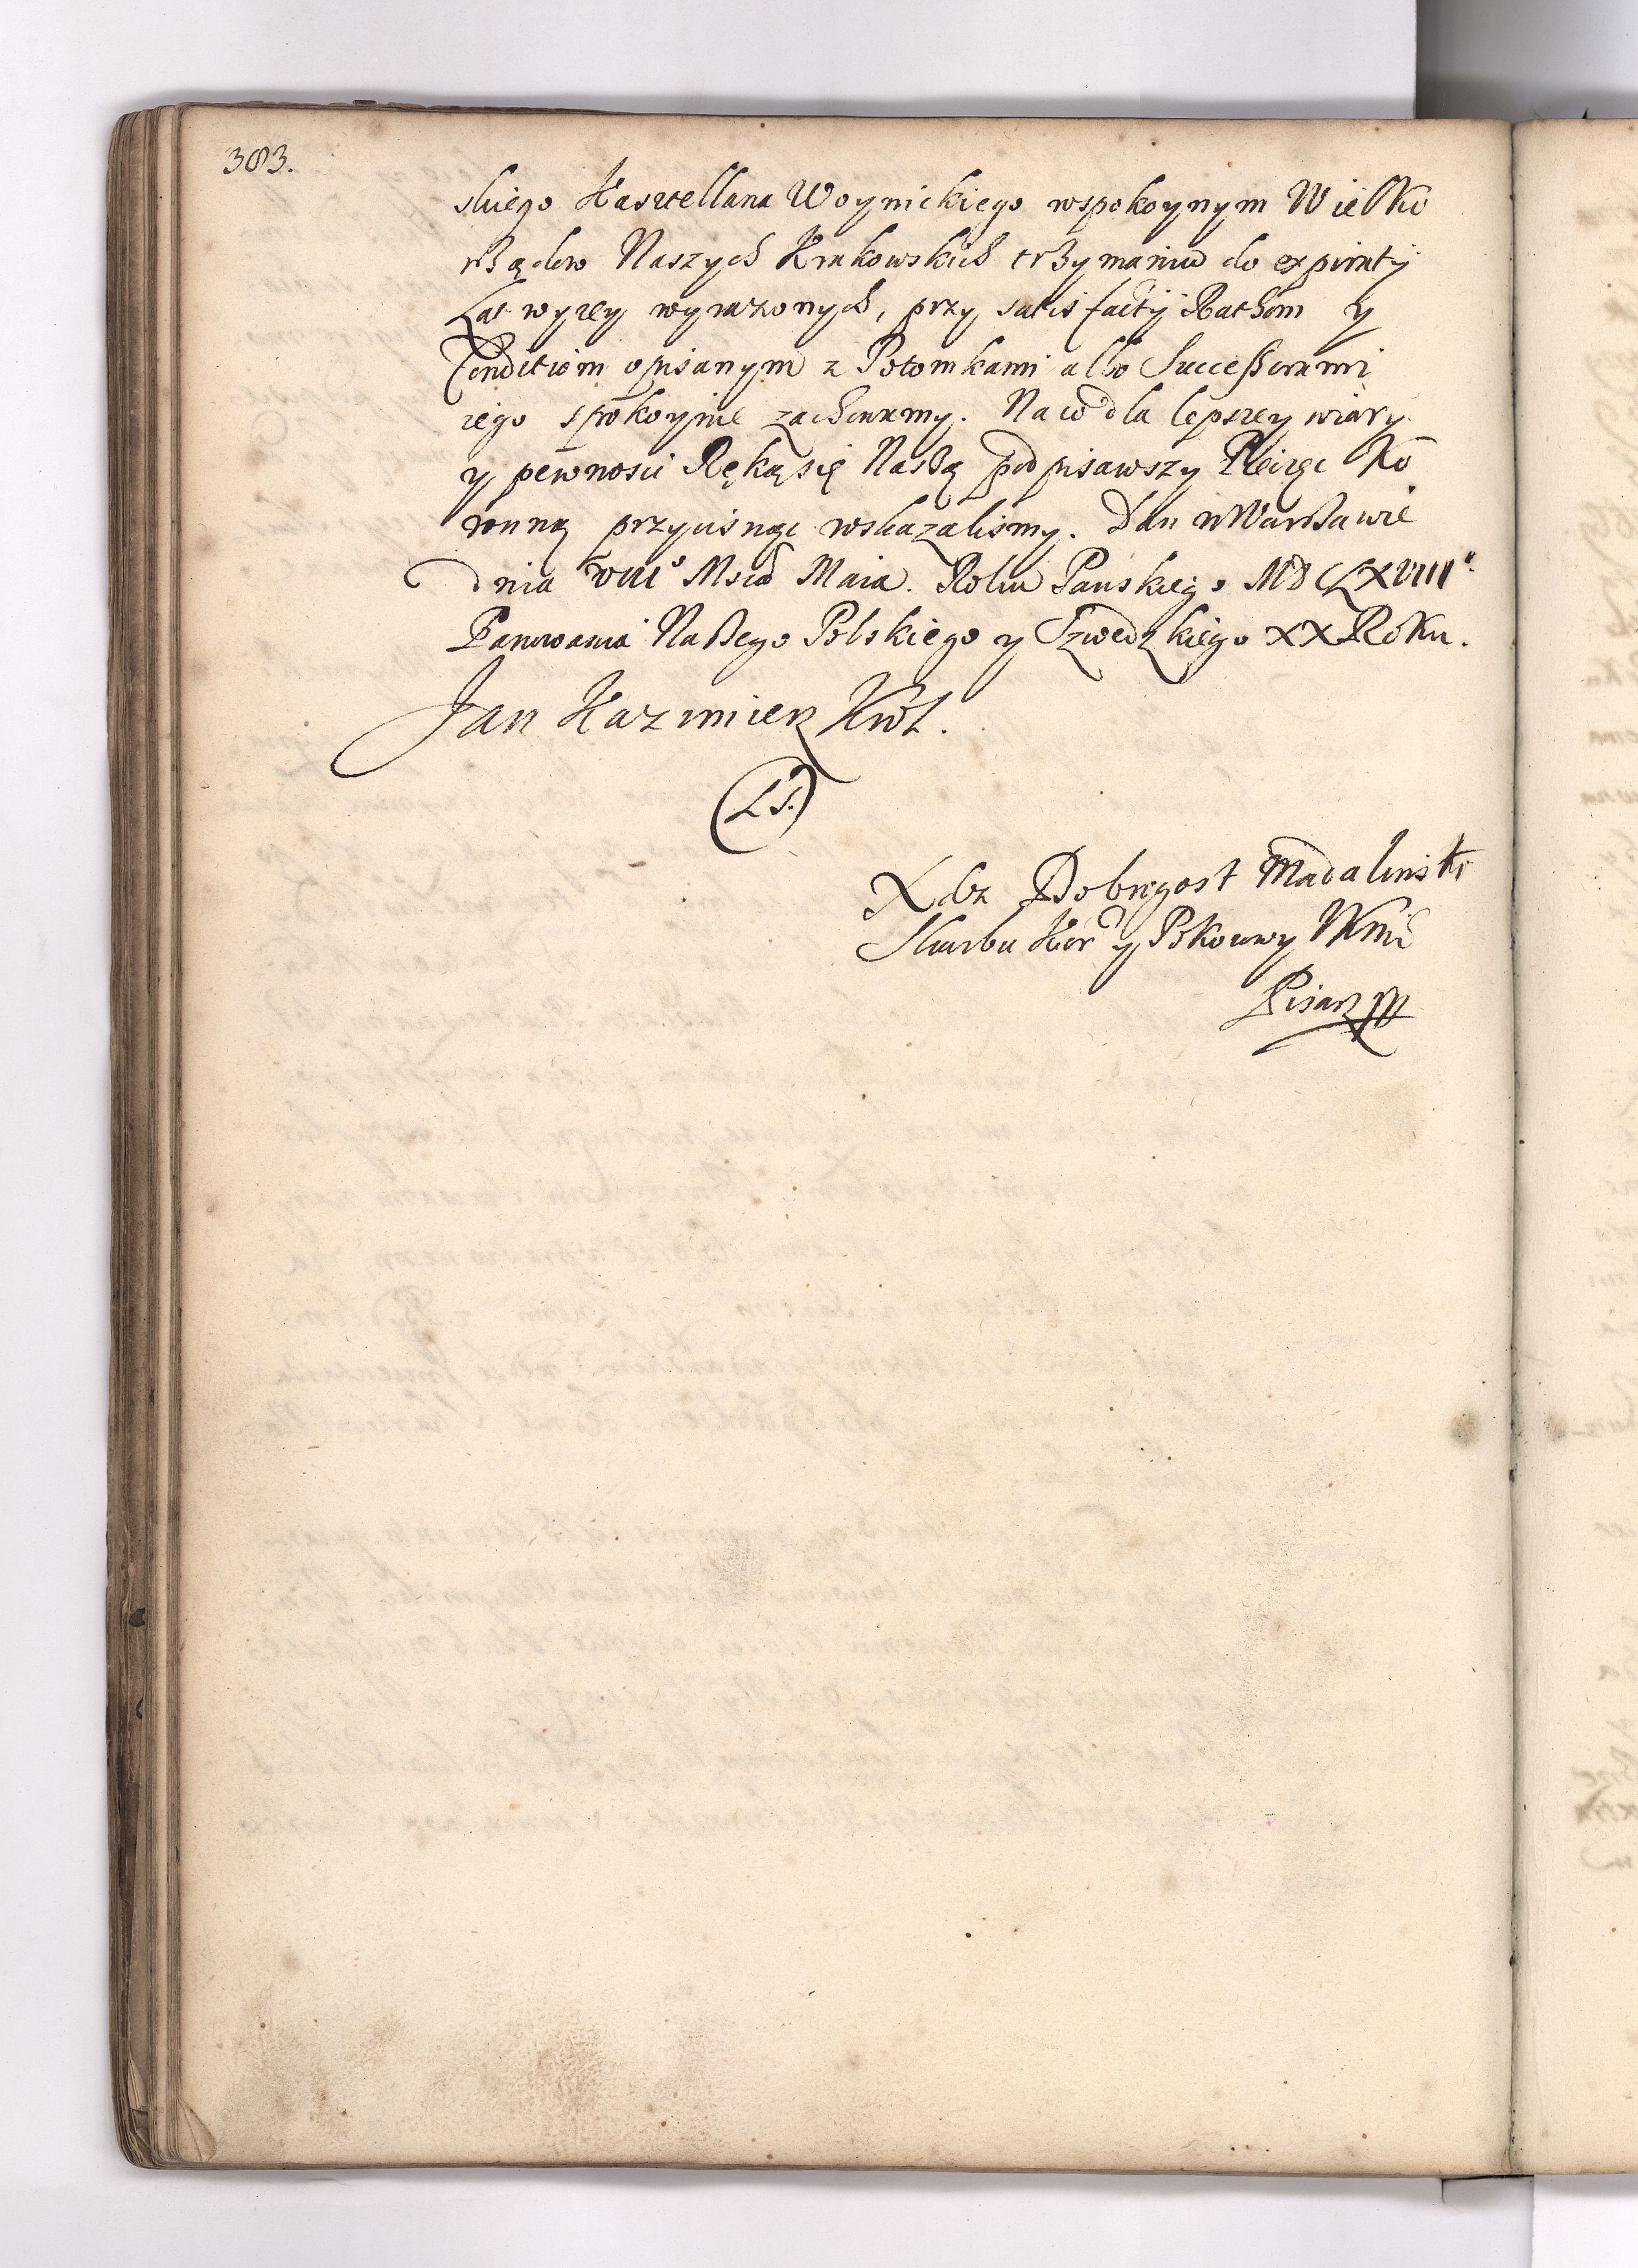 383.
skiego Kasztellana Woynickiego wspokoynym Wielko
rządow Naszych Krakowskich trzymaniu do expiraty
Lat wyzey wyrazonych, przy satisfactij Rathom y
Conditiom opisanym z Potomkami albo Successorami
iego spokoynie zachowamy. Na co dla lepszey wiary
y pewnosci Ręką się Naszą podpisawszy Pieięc Ko
ronną przycisnąc wskazalismy. Dan w Warszawie
dnia VIII Msca Maia. Roku Panskiego MDCLXVIII
Panowania Naszego Polskiego y Szwedzkiego XX Roku.
Jan Kazimierz Krol.
(LS.)
Xdz Dobrogost Madalinski
Skarbu Kor y Pokoiowy JKMci
Pisarz